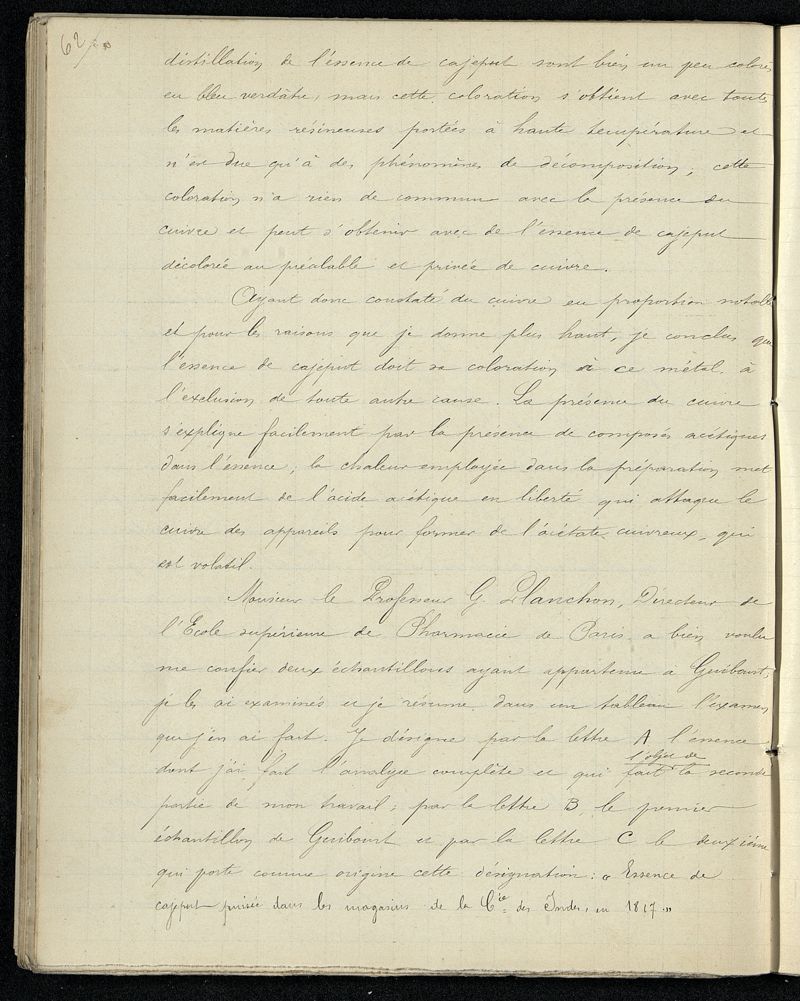 62
distillation de l'essence de cajeput sont bien un peu colorés
en bleu verdâtre, mais cette coloration s'obtient avec toutes
les matières résineuses portées à haute température et
n'est due qu'à des phénomènes de décomposition ; cette
coloration n'a rien de commun avec la présence du
cuivre et peut s'obtenir avec de l'essence de cajeput
décolorée au préalable et privée de cuivre.
Ayant donc constaté du cuivre en proportion notable
et pour les raisons que je donne plus haut, je conclus que
l'essence de cajeput doit sa coloration à ce métal à
l'exclusion de toute autre cause. La présence du cuivre
s'explique facilement par la présence de composés acétiques
dans l'essence ; la chaleur employée dans la préparation met
facilement de l'acide acétique en liberté qui attaque le
cuivre des appareils pour former de l'acétate cuivreux, qui
est volatil.
Monsieur le Professeur G. Planchon, Directeur de
l'Ecole supérieure de Pharmacie de Paris a bien voulu
me confier deux échantillons ayant appartenu à Guibourt,
je les ai examinés et je résume dans un tableau l'examen
que j'en ai fait. Je désigne par la lettre A l'essence
l'objet de
dont j'ai fait l'analyse complète et qui fait la seconde
partie de mon travail ; par la lettre B, le premier
échantillon de Guibourt et par la lettre C le deuxième
qui porte comme origine cette désignation : « Essence de
cajeput puisée dans les magasins de la Cie des Indes, en 1817 »